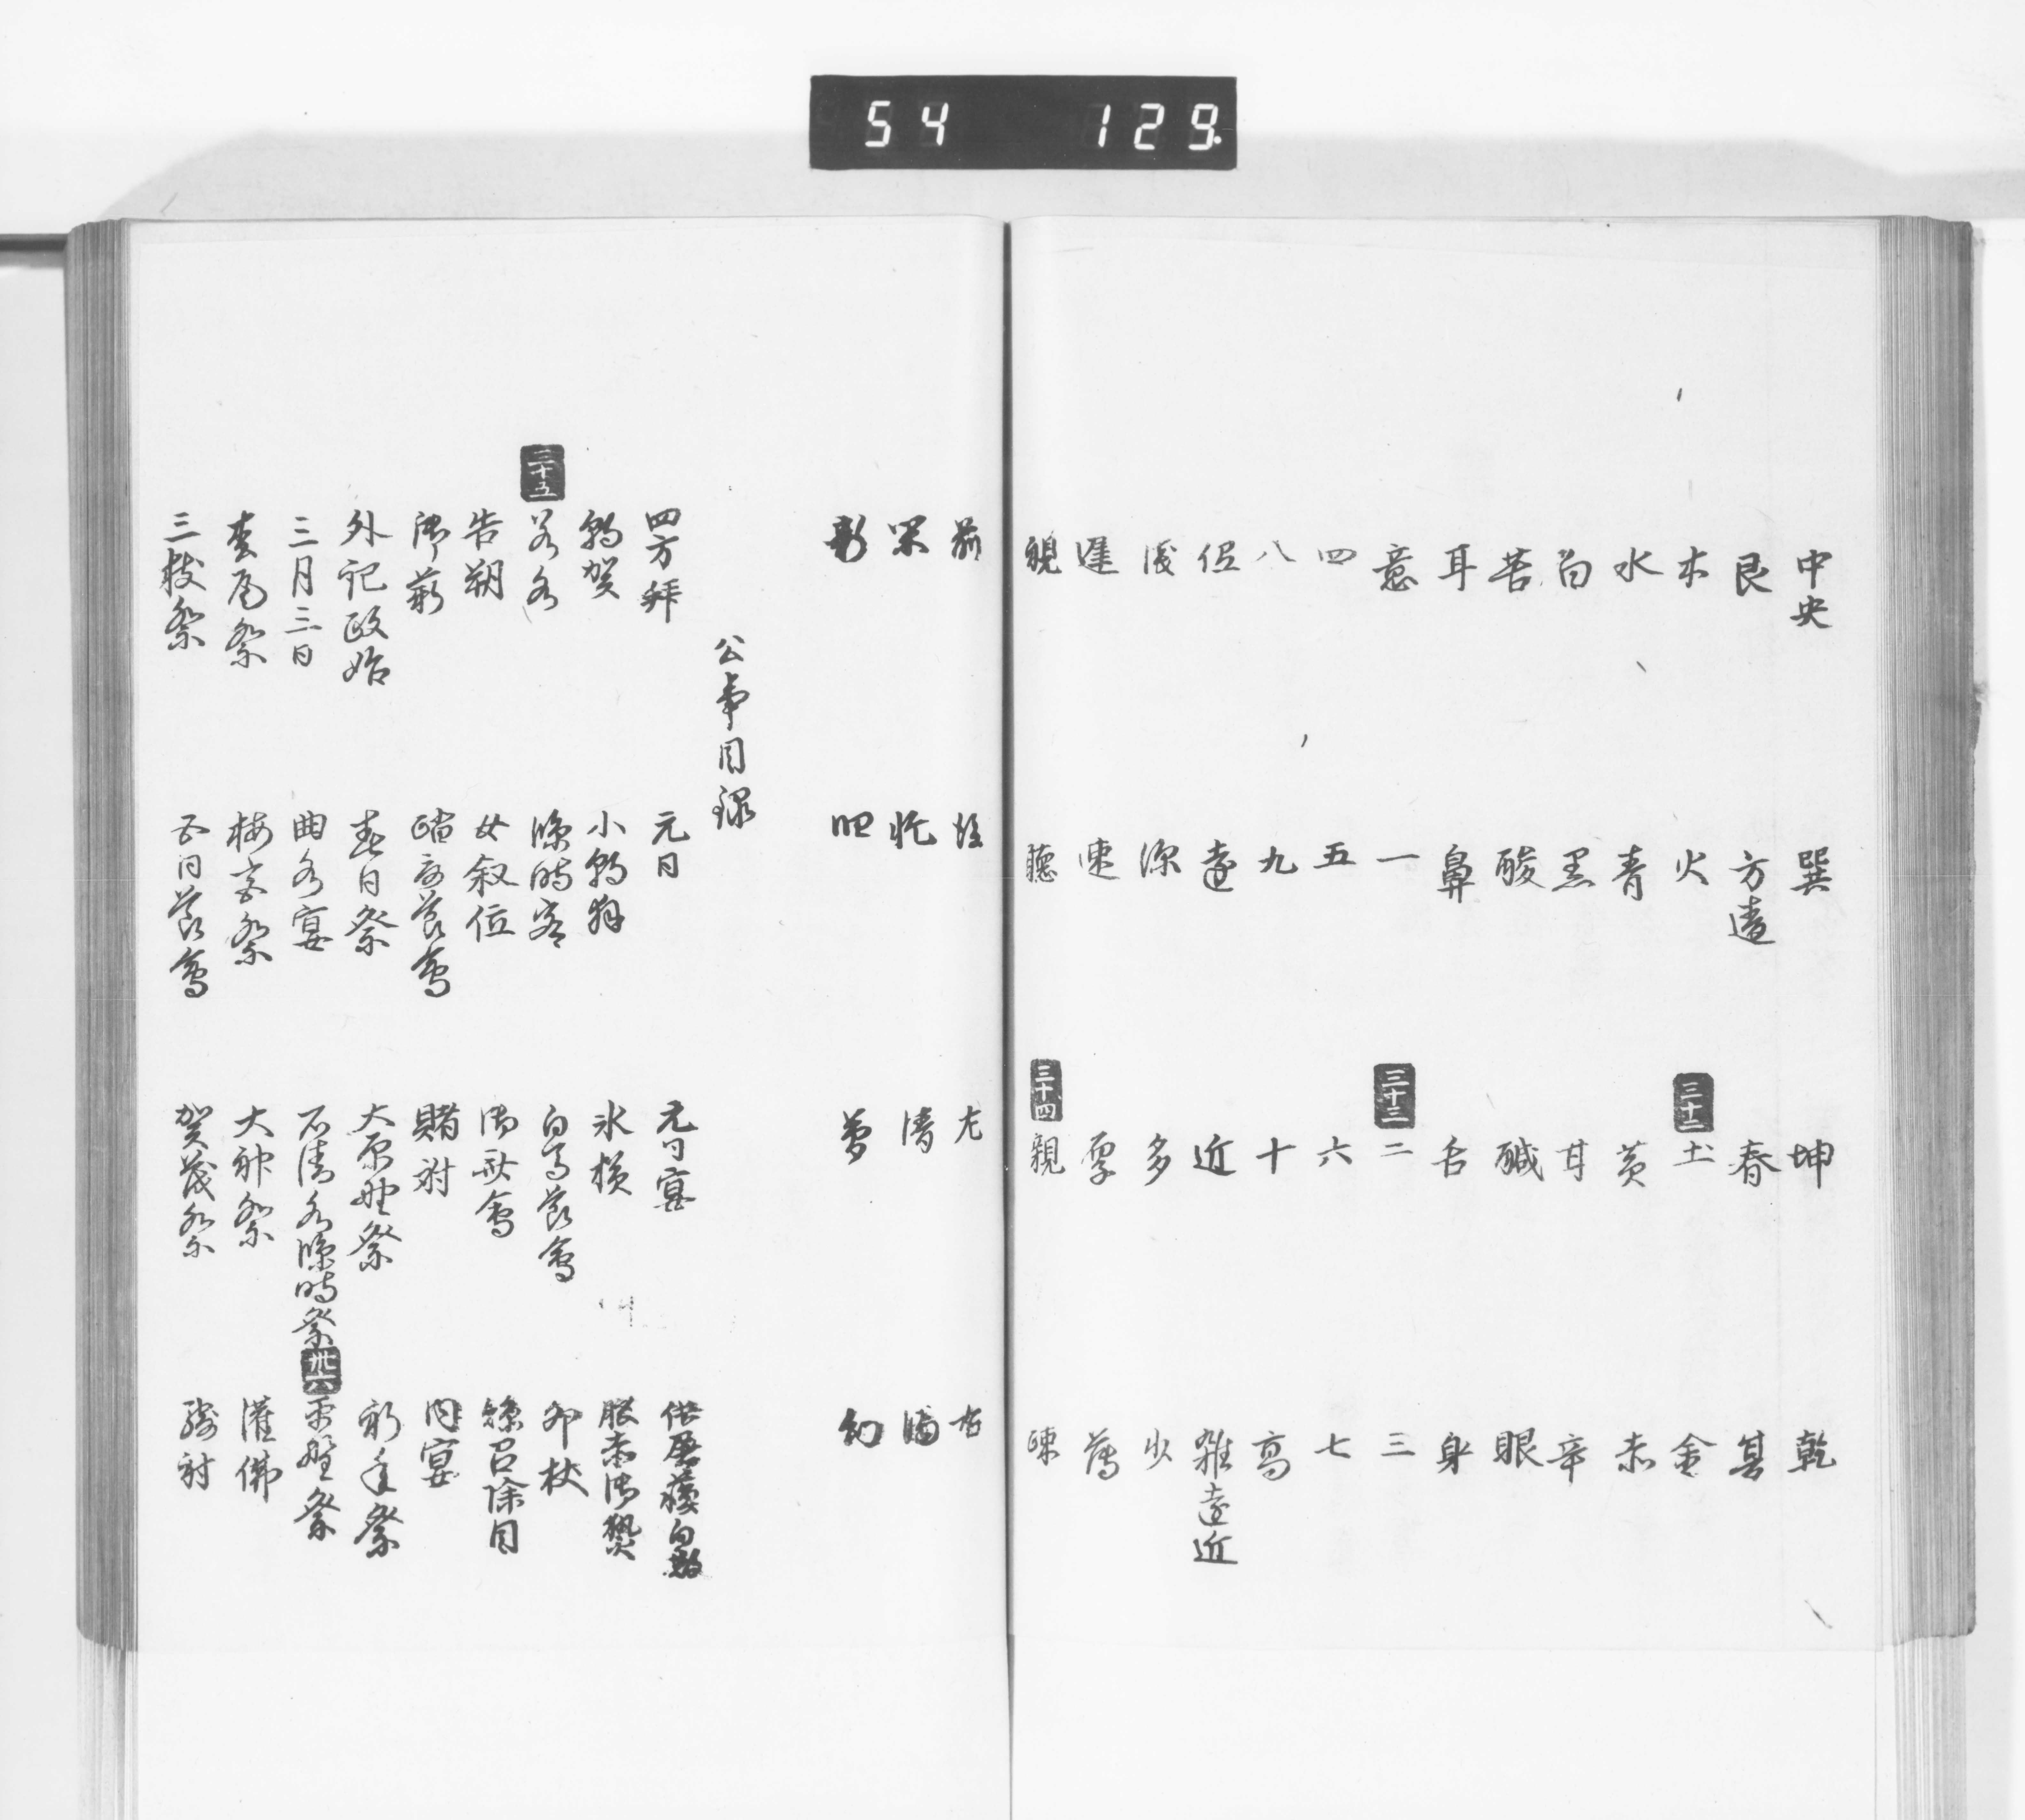 54 129
中央 巽 坤 乾
艮 方違 春 其
木 火 三十二 土 金
水 青 黄 赤
白 黒 甘 辛
苦 酸 鹹 眼
耳 鼻 舌 身
意 一 三十三 二 三
四 五 六 七
八 九 十 高
低 遠 近 雑遠近
浅 深 多 少
遅 速 厚 薄
聴 三十四 親 疎
前 左 右
清 濁
影 夢 幻
公事目録
四方拝 元日 元日宴 供屠蘇白散
朝賀 小朝拝 氷様 腹赤御贄
三十五 若水 臨時客 白馬節会 卯杖
告朔 女叙位 御斎会 縣召除目
御薪 踏歌節会 賭射 内宴
外記政始 春日祭 大原野祭 祈年祭
三月三日 曲水宴 石清水臨時祭 卅六 平野祭
松尾祭 梅宮祭 大神祭 灌仏
三枝祭 五日節会 賀茂祭 騎射